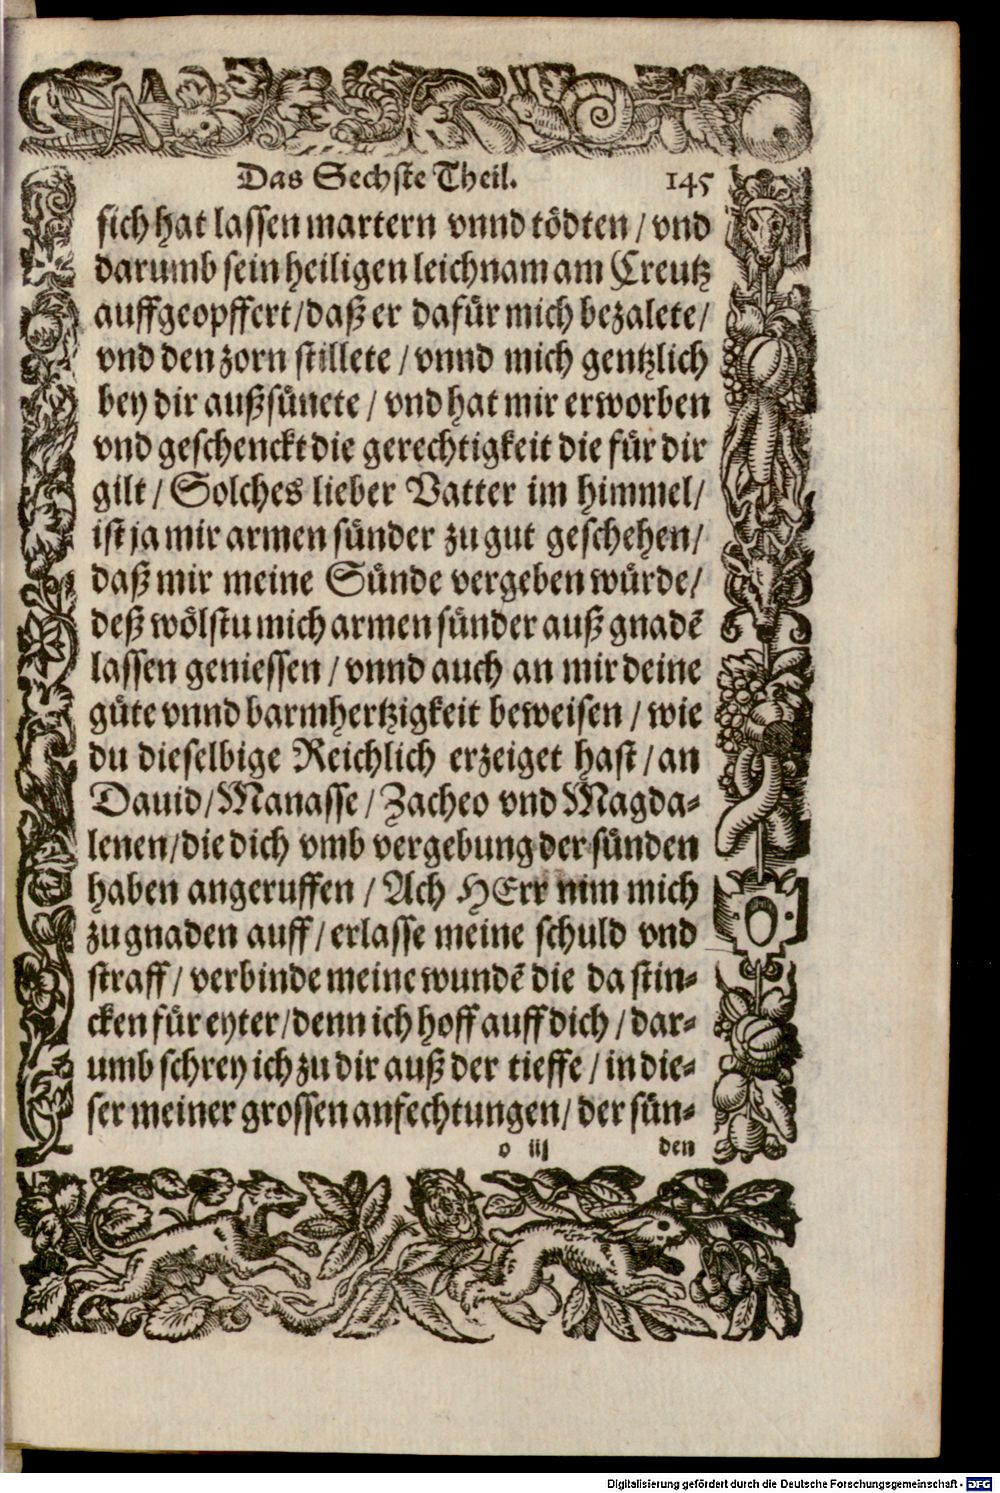 Das Sechste Theil. 145
sich hat lassen martern vnnd tödten / vnd
darumb sein heiligen leichnam am Creutz
auffgeopffert / daß er dafür mich bezalete /
vnd den zorn stillete / vnnd mich gentzlich
bey dir außsünete / vnd hat mir erworben
vnd geschenckt die gerechtigkeit die für dir
gilt / Solches lieber Vatter im himmel /
ist ja mir armen sünder zu gut geschehen /
daß mir meine Sünde vergeben würde /
deß wölstu mich armen sünder auß gnadē
lassen geniessen / vnnd auch an mir deine
güte vnnd barmhertzigkeit beweisen / wie
du dieselbige Reichlich erzeiget hast / an
Dauid / Manasse / Zacheo vnd Magda-
lenen / die dich vmb vergebung der sünden
haben angeruffen / Ach HErr nim mich
zu gnaden auff / erlasse meine schuld vnd
straff / verbinde meine wundē die da stin-
cken für eyter / denn ich hoff auff dich / dar-
umb schrey ich zu dir auß der tieffe / in die-
ser meiner grossen anfechtungen / der sün-
o iij den
Digitalisierung gefördert durch die Deutsche Forschungsgemeinschaft - DFG